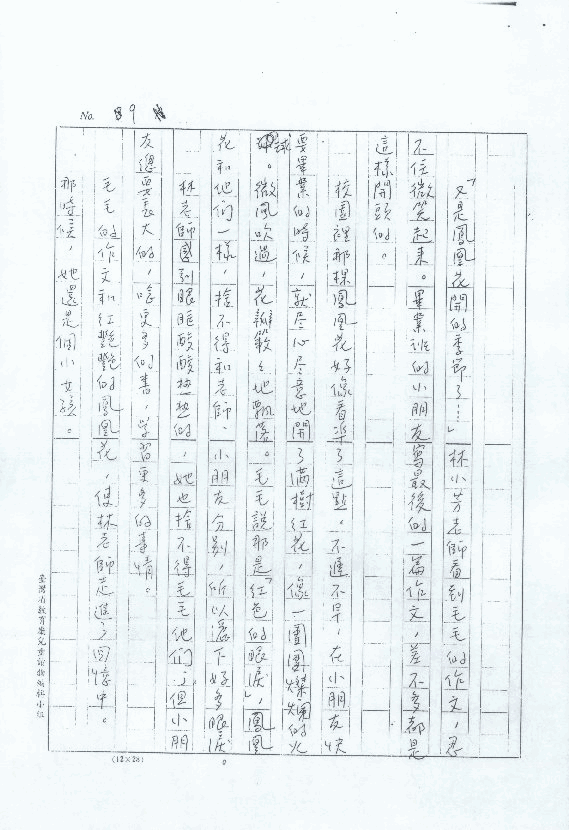 No. 89
「又是鳳凰花開的季節了…」林小芳老師看到毛毛的作文，忍
不住微笑起來。畢業班的小朋友寫最後的一篇作文，差不多都是
這樣開頭的。
校園裡那棵鳳凰花好像看準了這點。不遲不早，在小朋友快
要畢業的時候，就尽心尽意地開了滿樹紅花，像一團團燦爛的火
球。微風吹過，花瓣簌々地飄落。毛毛說那是「紅色的眼淚」，鳳凰
花和他們一樣，捨不得和老師、小朋友分別，所以灑下好多眼淚
林老師感到眼眶酸酸熱熱的，她也捨不得毛毛他們；但小朋
友總要長大的，唸更多的書，学習更多的事情。
毛毛的作文和紅艷艷的鳳凰花，使林老師走進了回憶中。
那時候，她還是個小女孩。
臺灣省教育廳兒童讀物編輯小組
(12×28)